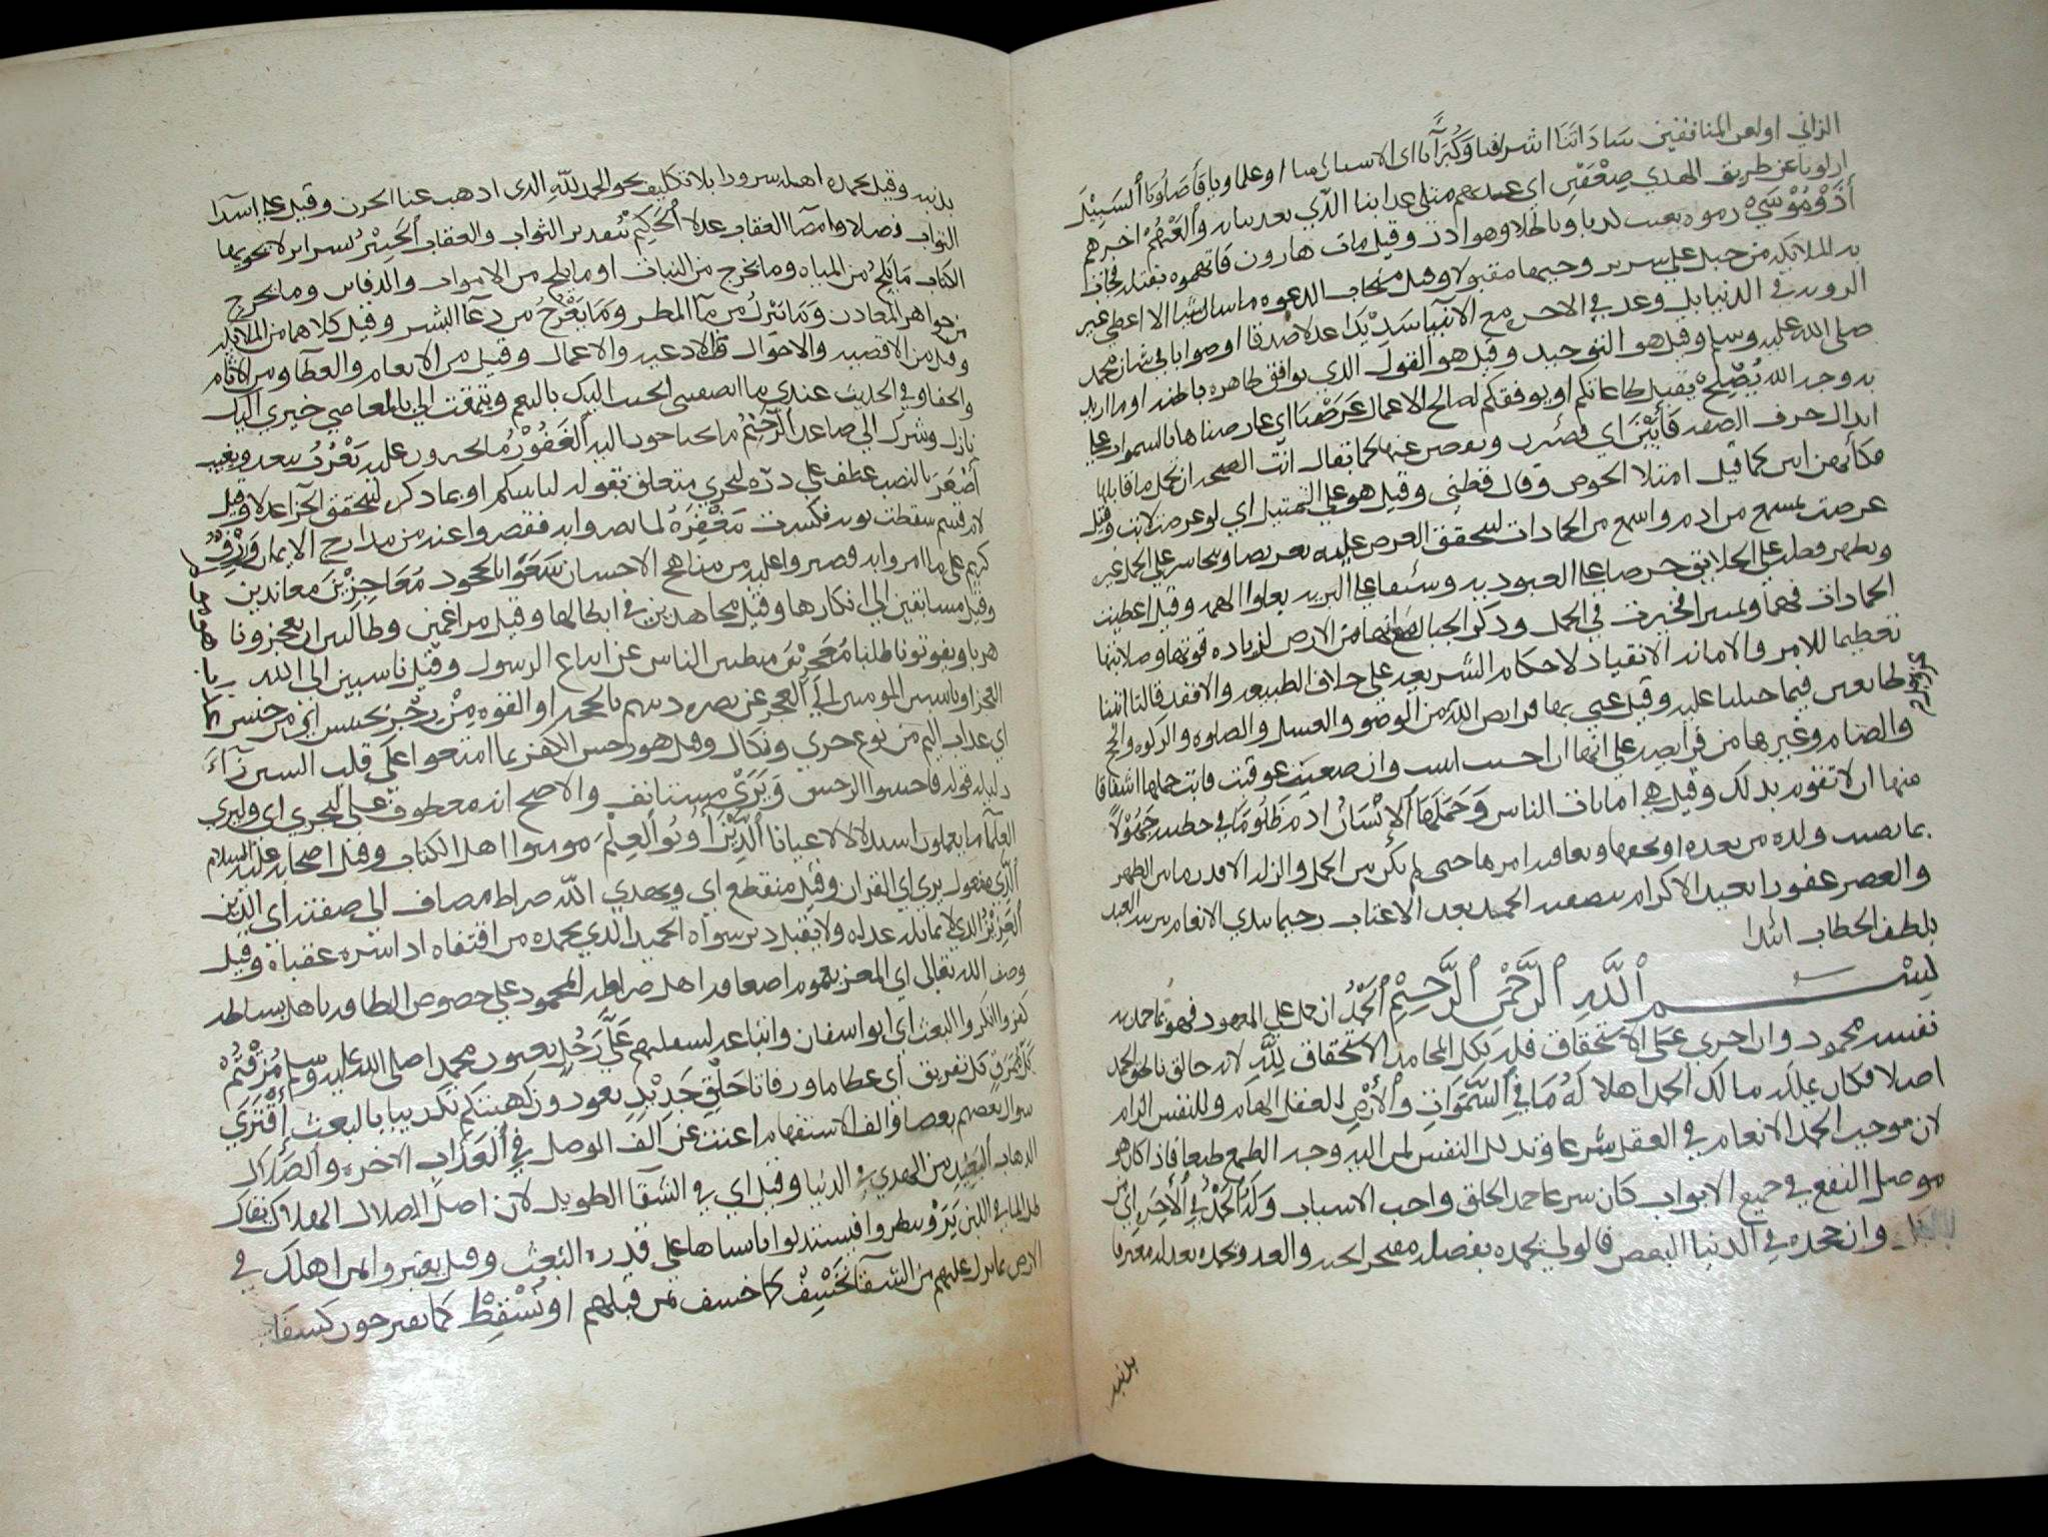 الزاني اولعن المنافقين سَادَاتَنَا اشرافنا وَكُبَرَآءَنَا اى الاسنان منا او علماونا فَأَضَلُّونَا ٱلسَّبِيْلَ
ازلونا عن طريق الهدي ضِعْفَيْنِ اي عذبهم مثلي عذابنا الذي بعد بيان وَٱلْعَنْهُمْ اخزهم
أٰذَوْا مُوْسَىٰ رموه بعيب وهو ادر وقيل مات هارون فاتهموه بقتله فجات
به الملايكة من جبل علي سرير وجيها مقبولا وقيل مجاب الدعوه ما سال شيا الا اعطي غير
الرويه في الدنيا بل وعد في الاخره مع الانبيا سَدِيْدًا عدلا صدقا او صوابا في شان محمد
صلى الله عليه وسلم وقيل هو التوحيد وقيل هو القول الذي يوافق ظاهره باطنه او ما اريد
به وجه الله يُصْلِحْ يقبل طاعاتكم او يوفقكم لصالح الاعمال عَرَضْنَا اي عارضنا ها بالسموات علي
ابدال حرف الصفه فَأَبَيْنَ اي قصرن ونقصن عنها كما يقال ابت الصنجه ان تحمل ما قابلها
فكأنهن ابين كما قيل امتلا الحوض وقال قطني وقيل هو علي التمثيل اي لو عرضت لابت وقيل
عرضت بمسمع من ادم واسمع من الجمادات ليتحقق العرض عليه تعريضا ويتجاسر علي الحمل غير
ويظهر فضله علي الخلايق حرصا علي العبوديه وشفقا علي البريه بعلو الهمه وقيل اعطيت
الجمادات فهما وتميزا فخيرت في الحمل وذكر الجبال مع انها من الارض لزياده قوتها وصلابتها
تعظيما للامر والامانه الانقياد لاحكام الشريعه علي خلاف الطبيعه والافقد قالتا اتينا
طايعين فيما جبلنا عليه وقيل عني بها فرايض الله من الوضو والغسل والصلوه والزكوه والحج
والصيام وغيرها من فرايضه علي انها ان احسنت اثيبت وان ضيعت عوقبت فابت حملها اشفاقا
منها ان لا تقوم بذلك وقيل هي امانات الناس وَحَمَلَهَا ٱلْإِنْسَانُ ادم ظَلُومًا في خطيته جَهُوْلًا
بما يصيب ولده من بعده او بحقها وبعاقبه امرها حتى لم يكن بين الحمل والزلة الا قدر ما بين الظهر
والعصر غفورا بعيد الاكرام رحيما يبدي الانعام
بلطف الخطاب ابتدا
بِسْمِ ٱللَّهِ ٱلرَّحْمٰنِ ٱلرَّحِيْمِ ٱلْحَمْدُ ان حمل علي المعهود فهو بما حمد به
نفسه محمود وان اجري علي الاستحقاق فله بكل المحامد الاستحقاق لِلَّهِ لانه خالق
اصلا فكان عليه مالك الحمد اهلا لَهُ مَا فِي ٱلسَّمٰوَاتِ وَٱلْأَرْضِ للعقل الهام وللنفس الزام
لان موجب الحمد الانعام في العقل شرعا وتذلل النفس لمن اليه وجه الطمع طبعا فاذا كان هو
موصل النفع في جميع الابواب كان شرعا حمد الخلق واجب الاسباب وَلَهُ ٱلْحَمْدُ فِي ٱلْأٰخِرَةِ اي من
وان جحده في الدنيا البعض فالولي يحمده بفضله والعدو يحمده بعدله معترفا
بذنبه
بذنبه وقيل يحمده اهله سرورا بلا تكليف نحو الحمد لله الذى اذهب عنا الحزن وقيل علي ابتدآ
الثواب فضلا وامضآ العقاب عدلا ٱلْحَكِيْمُ بتقدير الثواب والعقاب ٱلْخَبِيْرُ بسراير لا يحويها
الكتاب مَا يَلِجُ من المياه وما يخرج من النبات او ما يلج من الاموات والدفاين وما يخرج
من جواهر المعادن وَمَا يَنْزِلُ من مآ المطر وَمَا يَعْرُجُ من دعآ البشر وقيل كلاهما من الملايكة
وقيل من الاقضيه والاحوال والادعيه والاعمال وقيل من الانعام والعطآ ومن الاثام
والجفا وفي الحديث عبدي ما انصفتني اتحبب اليك بالنعم وتتمقت الي بالمعاصي خيري اليك
نازل وشرك الي صاعد ٱلرَّحِيْمُ ما يحتاجون اليه ٱلْغَفُوْرُ ما يجترون عليه يَعْزُبُ يبعد ويغيب
أَصْغَرَ بالنصب عطف علي ذره ليجزي متعلق بقوله لتاتينكم او بما ذكر ليتحقق الجزا عدلا وقيل
لام قسم سقطت نونه فكسرت مَغْفِرَةٌ لما نهوا به فقصروا عنه من مدارج الايمان وَرِزْقٌ
كريم علي ما امروا به وصبروا عليه من مناهج الاحسان سَعَوْا بالجحود مُعَاجِزِيْنَ معاندين
وقيل مسابقين الي انكارها وقيل مجاهدين في ابطالها وقيل مراغمين وظانين ان يعجزونا
هربا ويفوتونا طلبا مُعَجِّزِيْنَ مثبطين الناس عن اتباع الرسول وقيل ناسبين الى الله
العجز او ناسبين المومنين الي العجز عن نصره دينهم بالحجه او القوه مِنْ رِجْزٍ بجنس اي من جنس
اي عذاب اليم من نوع خزي ونكال وقيل هو رجس الكفر بما امتنحوا علي قلب السين زآءً
دليله قوله فاجتنبوا الرجس وَيَرَى مستانف والاصح انه معطوف علي ليجزي اى وليري
العلمآ ما يعلمون استدلالا عيانا ٱلَّذِيْنَ أُوتُوا ٱلْعِلْمَ مومنوا اهل الكتاب وقيل اصحابه عليه السلام
ٱلَّذِي مفعول يري اي القران وقيل منقطع اي ويهدي الله صراط مضاف الي صفته اي الدين
ٱلْعَزِيْزِ الذي لا يماثله عدله ولا يقبل دين سواه الحميد الذي يحمده من اقتفاه اذا سره عقباه وقيل
وصف الله تعالى اي المعز بنعمته اهل صراطه المحمود علي خصوص الطافه باهل بساطه
كفروا انكروا البعث اي ابو سفان واتباعه لسفلتهم عَلَىٰ رَجُلٍ يعنون محمدا صلى الله عليه وسلم مُزِّقْتُمْ
كُلَّ مُمَزَّقٍ كل تفريق اى عظاما ورفاتا خَلْقٍ جَدِيْدٍ تعودون كهيئتكم تكذيبا بالبعث أَفْتَرَىٰ
سوال بعضهم بعضا والف الاستفهام اغنت عن الف الوصل فِي ٱلْعَذَابِ الاخره وَٱلضَّلَالِ
الذهاب ٱلْبَعِيْدِ من الهدي في الدنيا وقيل اي في الشقآ الطويل لان اصل الضلال الهلاك يقال
ضل المآ في اللبن يَرَوْا ينظروا فيستدلوا بانشاها علي قدره البعث وقيل يعتبروا بمن اهلك في
الارض بما نزل عليهم من السمآ نَخْسِفْ كما خسف بمن قبلهم او نُسْقِطْ كما يقترحون كسفا